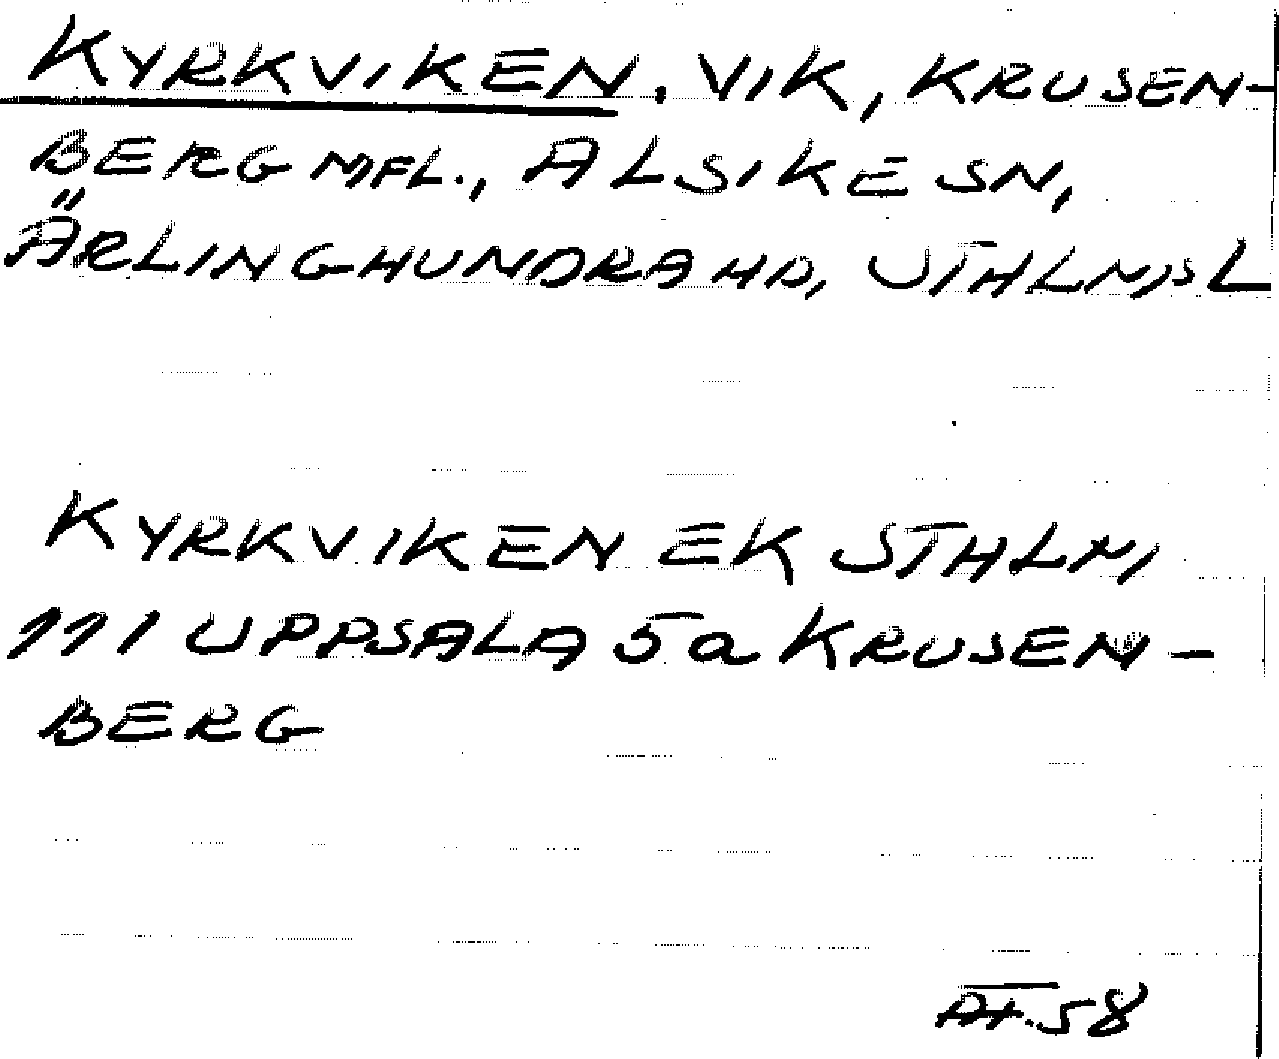 KYRKVIKEN, VIK, KRUSEN-
BERG MFL., ALSIKE SN,
ÄRLINGHUNDRA HD, STHLMS L
KYRKVIKEN EK STHLM
111 UPPSALA 5a KRUSEN-
BERG
58